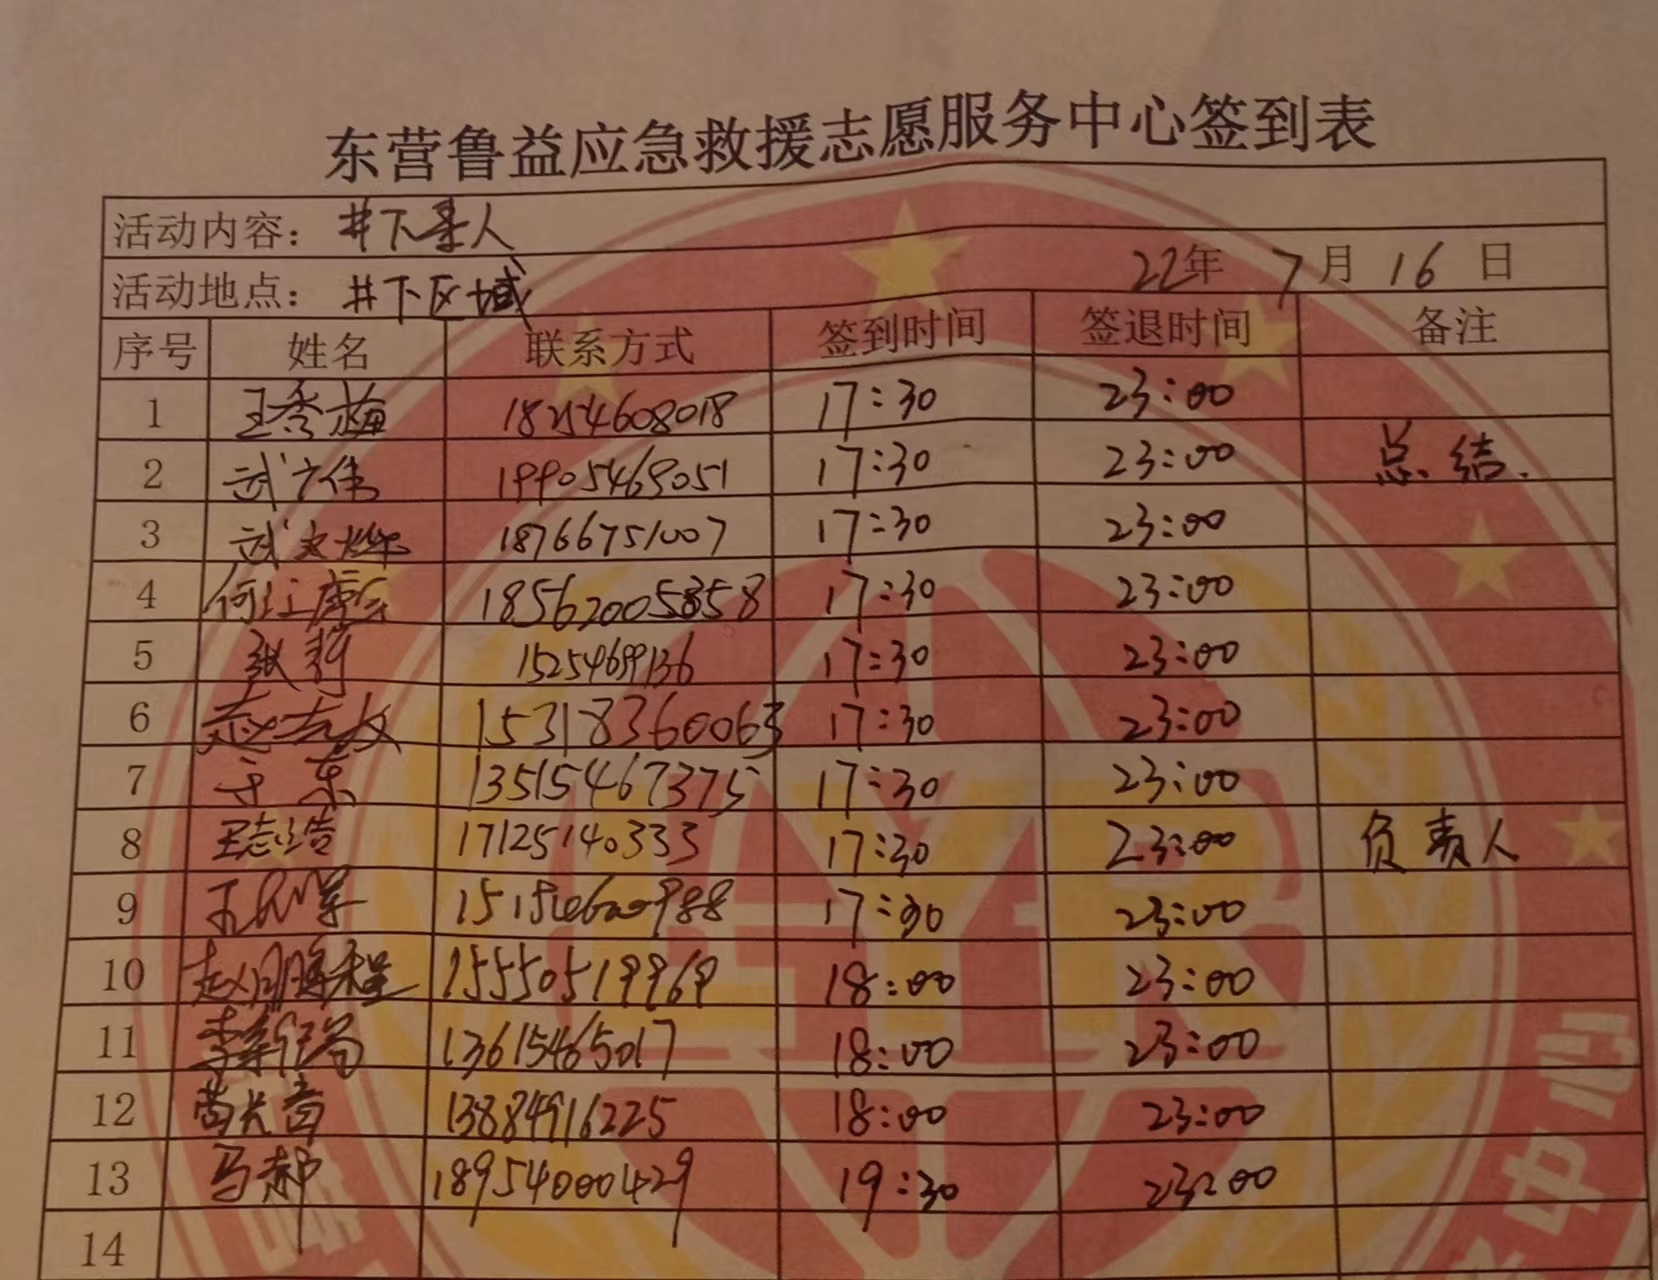 东营鲁益应急救援志愿服务中心签到表
活动内容：井下寻人
22年 7月 16日
活动地点：井下区域
序号 姓名 联系方式 签到时间 签退时间 备注
1 王秀梅 18254608018 17:30 23:00
2 武广伟 19905469051 17:30 23:00 总结.
3 武文烨 18766751007 17:30 23:00
4 185620058358 17:30 23:00
5 张莉 15254699136 17:30 23:00
6 赵 15318360063 17:30 23:00
7 于东 13515467375 17:30 23:00
8 王志浩 17125140333 17:30 23:00 负责人
9 王 17:30 23:00
10 赵鹏程 15550519969 18:00 23:00
11 李新 13615465017 18:00 23:00
12 13884916225 18:00 23:00
13 马 189540000429 19:30 23:00
14
中心